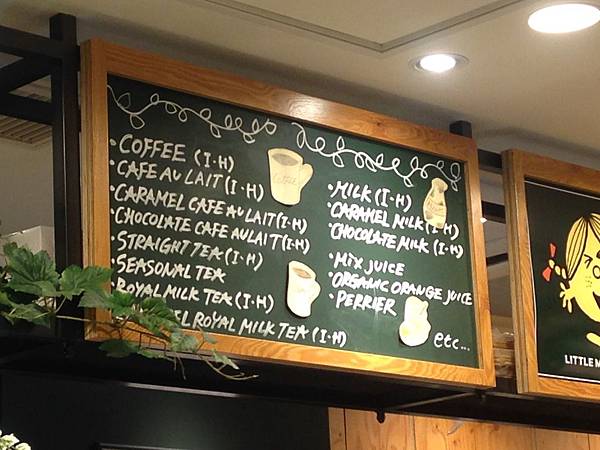 • COFFEE (I・H)
• CAFE AU LAIT (I・H)
• CARAMEL CAFE AU LAIT (I・H)
• CHOCOLATE CAFE AU LAIT (I・H)
• STRAIGHT TEA (I・H)
• SEASONAL TEA
ROYAL MILK TEA (I・H)
ROYAL MILK TEA (I・H)
Coffee
• MILK (I・H)
• CARAMEL MILK (I・H)
• CHOCOLATE MILK (I・H)
• MIX JUICE
• ORGANIC ORANGE JUICE
• PERRIER
etc...
LITTLE